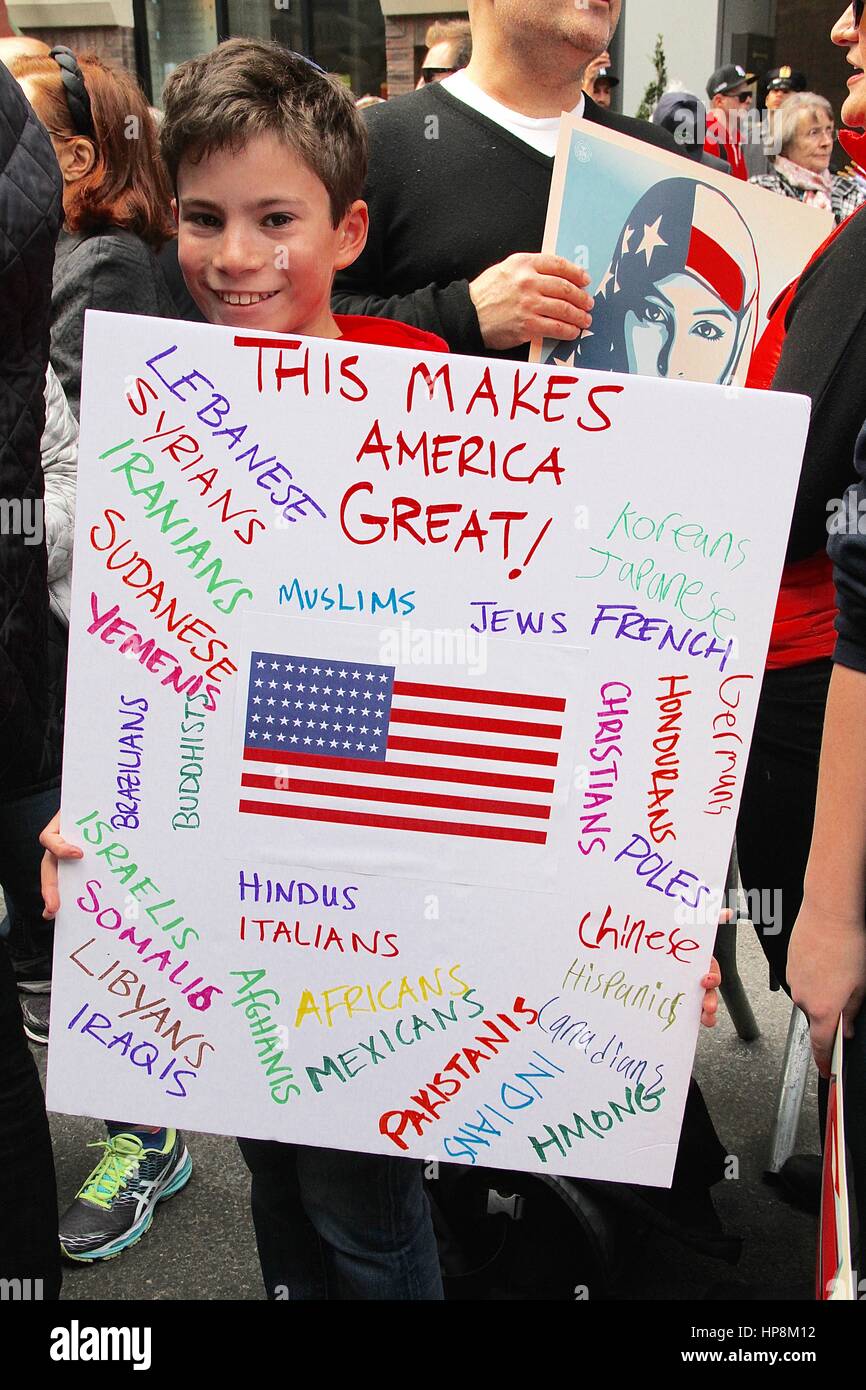 THIS MAKES
AMERICA
GREAT!
LEBANESE
SYRIANS
IRANIANS
SUDANESE
YEMENIS
MUSLIMS
JEWS
FRENCH
Koreans
Japanese
BRAZILIANS
BUDDHISTS
CHRISTIANS
HONDURANS
Germans
POLES
ISRAELIS
SOMALIS
LIBYANS
IRAQIS
HINDUS
ITALIANS
AFGHANIS
AFRICANS
MEXICANS
PAKISTANIS
INDIANS
Chinese
HISPANICS
Canadians
HMONG
alamy
alamy
Image ID: HP8M12
www.alamy.com